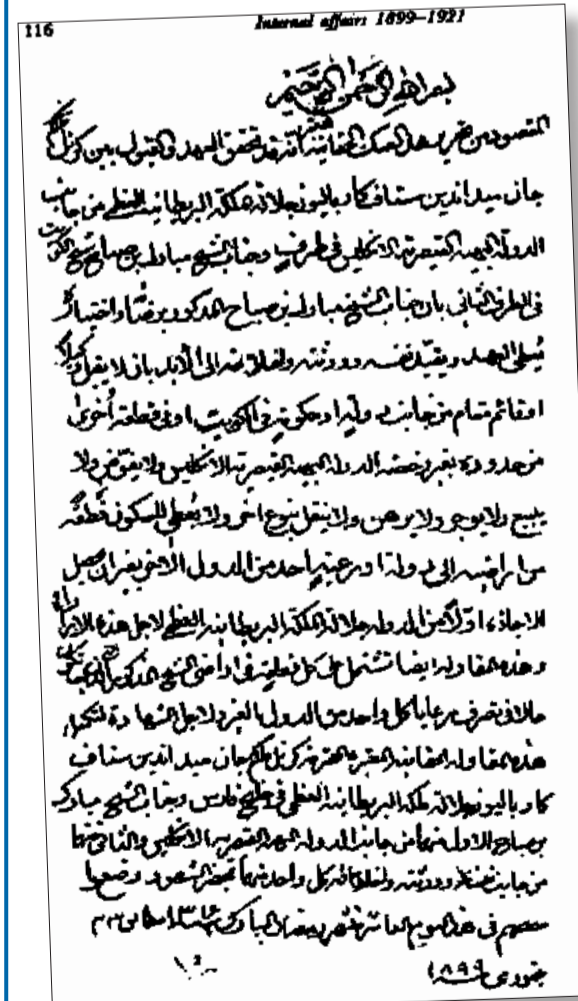 116 Internal affairs 1899–1921
بسم الله الرحمن الرحيم
المقصود من تحرير هذا السند هو أنه قد تحقق العهد والقبول بين كرنل
جان ميد اندين ستاف كار باليوز جلالة ملكة البريطانية العظمى من جانب
الدولة البهية القيصرية الانكليس في طرف وجناب الشيخ مبارك بن صباح شيخ الكويت
في الطرف الثاني بان جناب الشيخ مبارك بن صباح المذكور برضاه واختياره
يعطي العهد ويقيد نفسه وورثته واخلافه الى الأبد بان لا يقبل وكيلا
او قائم مقام من جانب دولة او حكومة في الكويت او في قطعة أخرى
من حدوده بغير رخصة الدولة البهية القيصرية الانكليس ولا يفوض ولا
يبيع ولا يوجر ولا يرهن ولا ينقل بنوع اخر ولا يعطي للسكون قطعة
من اراضيه الى دولة او رعية احد من الدول الاخرى بغير ان يحصل
الاجازة اولا من الدولة جلالة الملكة البريطانية العظمى لاجل هذه
وهذه المقاولة ايضا تشتمل على كل قطعة في اراضي الشيخ المذكور
حالا في تصرف رعايا كل واحد من الدول الغير ولاجل الشهادة
هذه المقاولة كرنل جان ميد اندين ستاف
كار باليوز جلالة ملكة البريطانية العظمى في خليج فارس وجناب الشيخ مبارك
بن صباح الاول منهما من جانب الدولة البهية القيصرية الانكليس والثاني منهما
من جانب نفسه وورثته واخلافه كل واحد منهما بمحضر الشهود وضعوا
في هذا اليوم العاشر شهر رمضان المبارك
جنوري ١٨٩٩